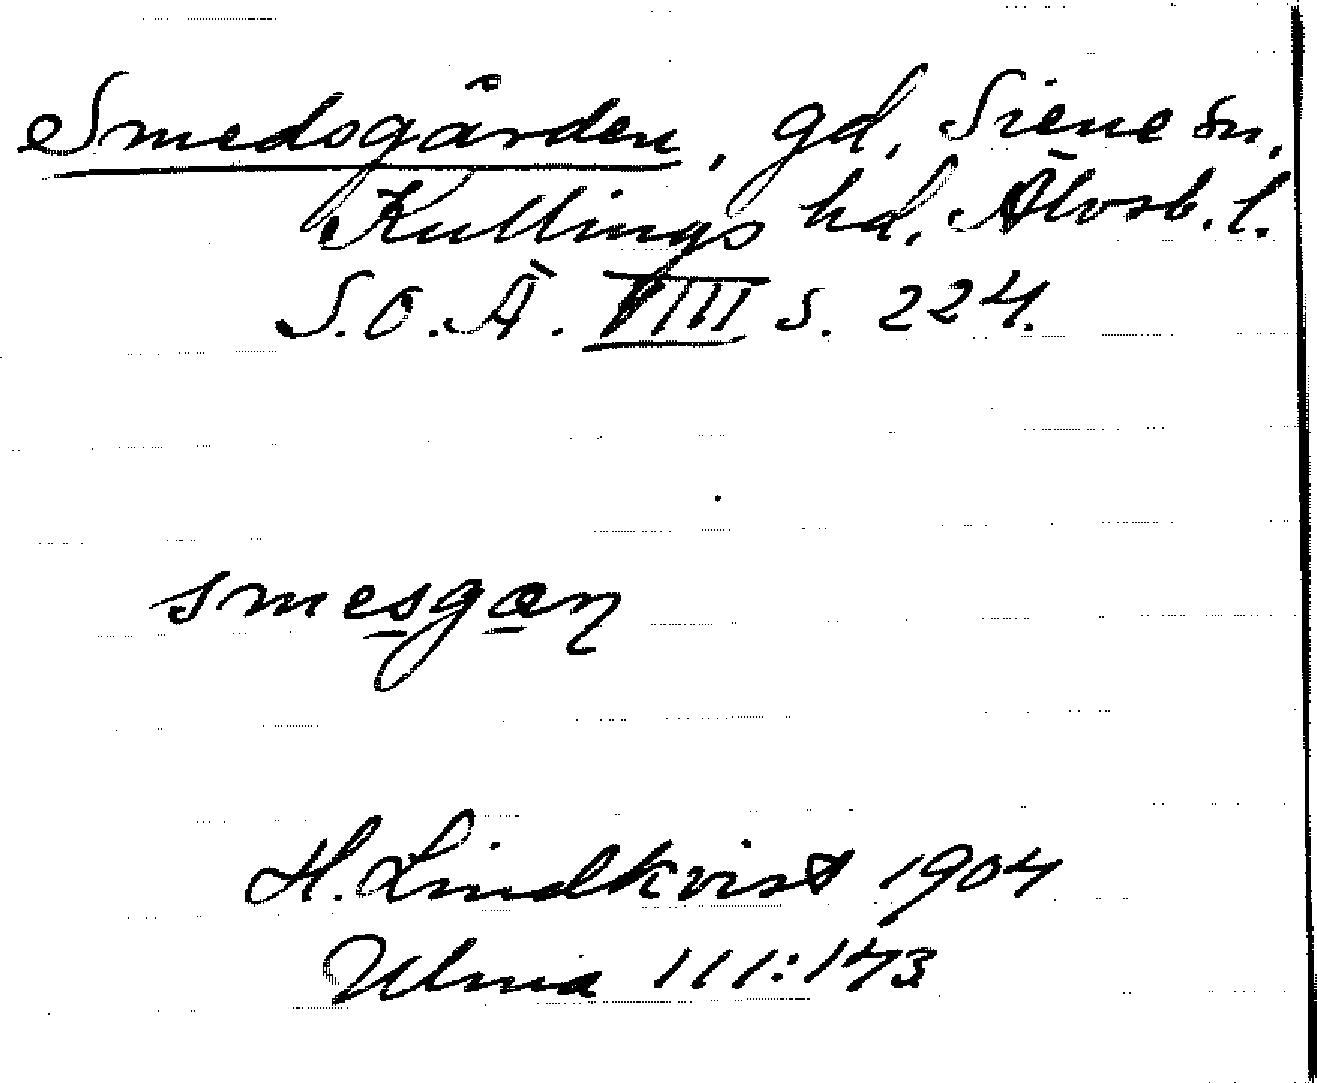 Smedsgården, gd, Siene sn,
Kullings hd, Älvsb. l.
S.O.Ä. VIII s. 224.
smesgæɳ
H. Lindkvist 1904
Ulma 111:143